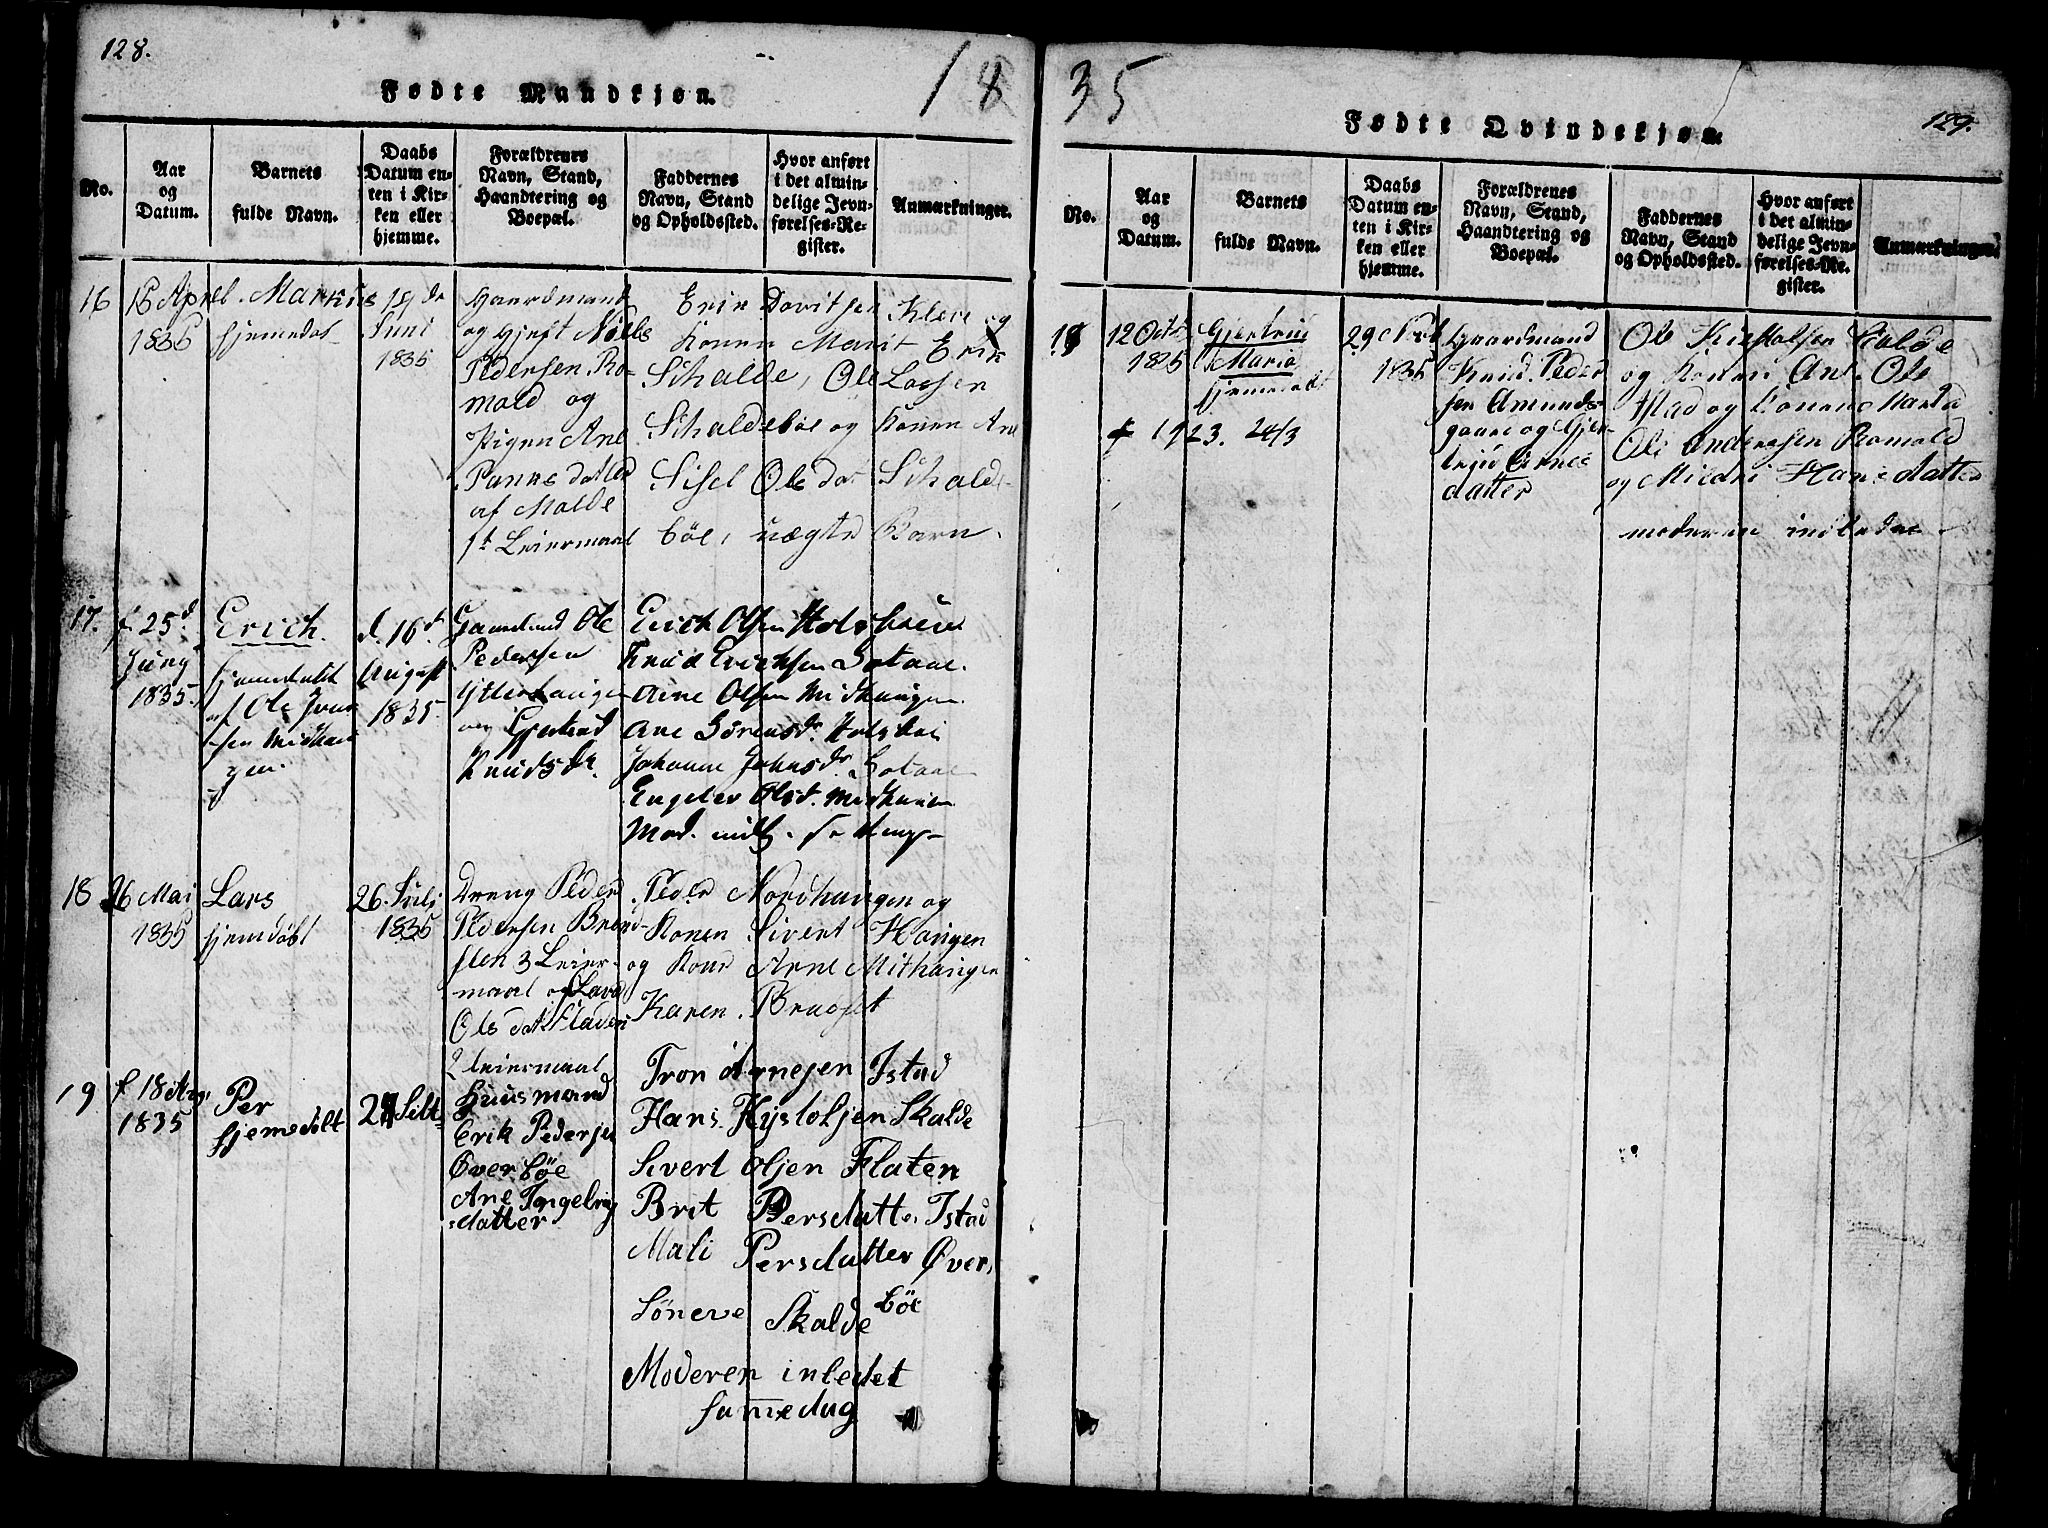 128.
18
Fødte Mandkjøn.
No.
Aar
og
Datum.
Barnets
fulde Navn.
Daabs
Datum en-
ten i Kir-
ken eller
hjemme.
Forældrenes
Navn, Stand,
Haandtering og
Boepæl.
Faddernes
Navn, Stand
og Opholdssted.
Hvor anført
i det almin-
delige Jevn-
førelses-Re-
gister.
Anmærkninger.
16
15 April
1835
Markus
hjemedøbt
19 de
Juni
1835
Gaardmand
og gjift Niels
Pedersen Ro-
mold og
Pigen Ane
datter
af Molde
1st Leiermaal
Erik Davitsen Kleve og
Konen Marit Erik
Schalde, Ole Larsen
Schaldebøe og Konen Ane
Sisel Ole dar Schalde-
bøe, uægte Barn.
17.
f 25d
Juny
1835.
Erich.
hjemedøbt
af Ole
sen Midhau
gen.
d. 16d.
August
1835.
Gaardmd Ole
Pedersen
Ytterhaugen
og Gjertrud
Knudsdr.
Erich Olsen
Knud Erichsen Sotaae.
Arne Olsen Midhaugen
Ane Sørensdr.
Johanne Johnsdr. Sotaae
Olsd. Midhaugen
Mod. indl.
18
26 Mai
1835
Lars
hjemdøbt
26. Juli
1835
Dreng Peder
Pedersen Brend-
sten 3 Leier-
maal og
Ols dat. Fladen
2 Leiermaal
Peder Nordhaugen og
Konen Sivert Haugen
og Kone Arne Mithaugen
Karen Bragset
19
f 18 Aug.
1835
Per
hjemedøbt
27 Sebt.
Huusmand
Erik Pedersen
Øverbøe
Ane Ingebrig
datter
Tron Arnesen Istad
Hans Kystolsen Skalde
Sivert Olsen Flaten
Brit Persdatte. Istad
Mali Persdatter Øver-
bøe
Söneve Skalde
Moderen inledet
samedag
35
129.
Fødte Qvindekjøn.
No.
Aar
og
Datum.
Barnets
fulde Navn.
Daabs
Datum en-
ten i Kir-
ken eller
hjemme.
Forældrenes
Navn, Stand,
Haandtering og
Boepæl.
Faddernes
Navn, Stand
og Opholdssted.
Hvor anført
i det almin-
delige Jevn-
førelses-Re-
gister.
Anmærkninger.
12 Octb
1835
Gjertrud
Maria
hjemedøbt
† 1923. 24/3
29
1835
Gaardmand
Knud Peder
sen Amunds-
gaard og Gjer-
trud Arnes
datter
Ole Kistolsen Skalde
og Konen Ane. Ole
Istad og Konene Marta
Ole Andersen Romold
og Mildri Hans datter
moderen indledet